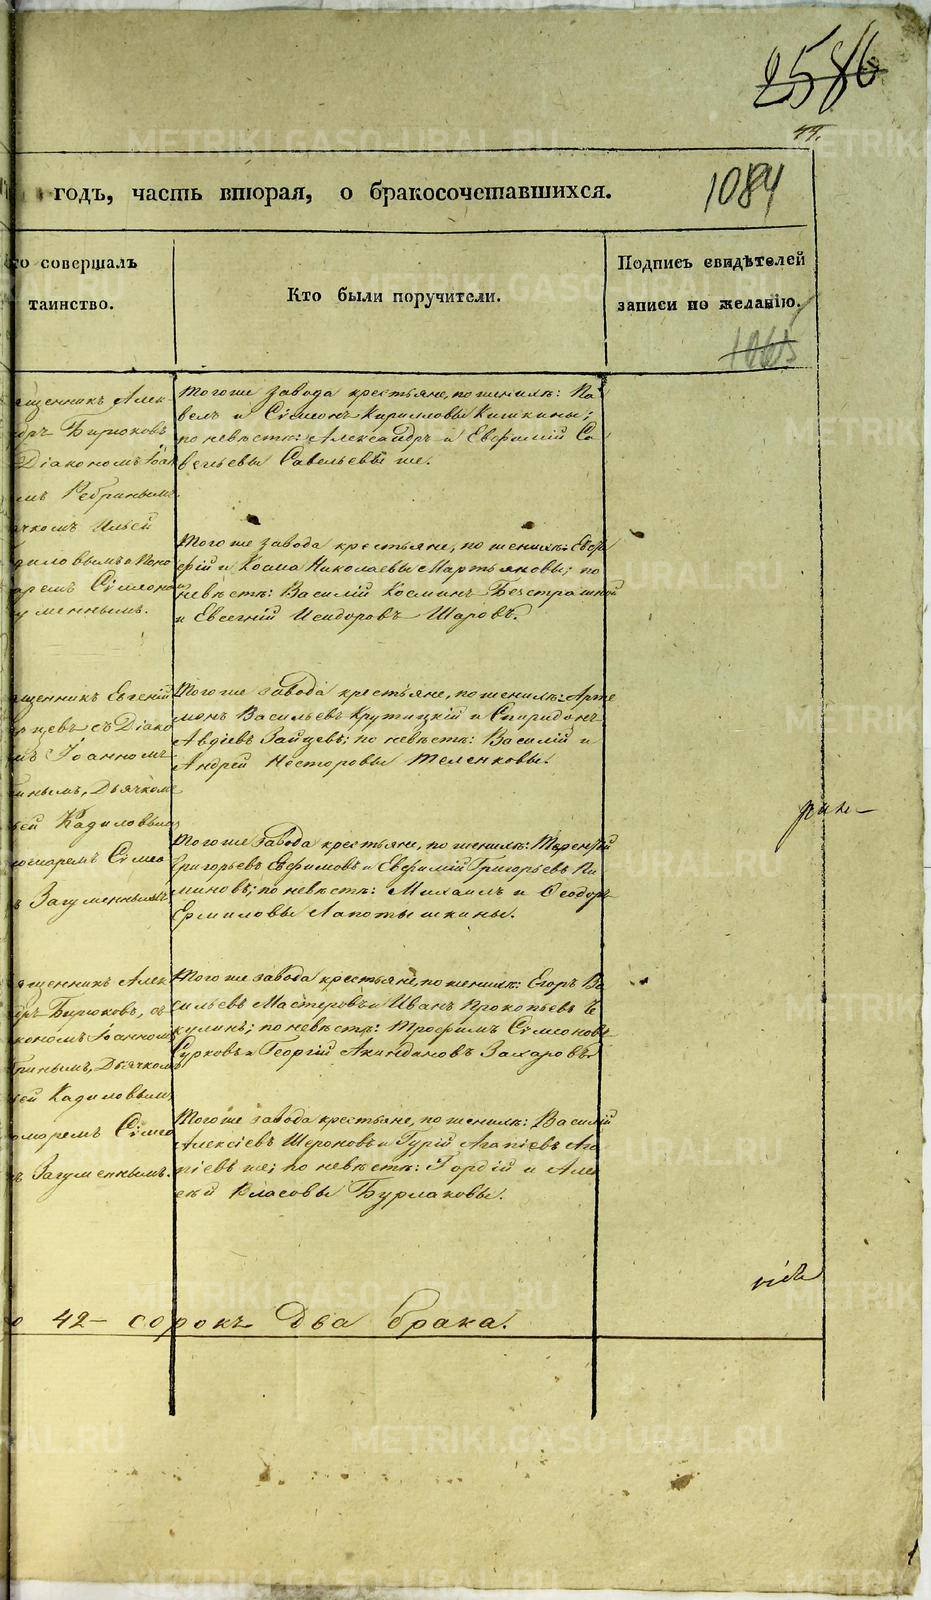 2586
44.
годъ, часть вторая, о бракосочетавшихся.
1084
то совершалъ
таинство.
Кто были поручители.
Подпись свидѣтелей
записи по желанію.
1065
ященникъ Алек
дръ Бирюковъ
Діакономъ Іоан
мъ Ребринымъ
ячкомъ Ильей
диловымъ и Поно
аремъ Сѵмеоном
гуменнымъ.
Тогоже завода крестьяне, по женихѣ: Па
велъ и Сѵмеонъ Кирилловы Кишкины;
по невѣстѣ: Александръ и Евфимій Са
вельевы Савельевы же.
Тогоже завода крестьяне, по женихѣ:
и Косма Николаевы Мартьяновы; по
невѣстѣ: Василій Косминъ Безстрашной
и Евгеній Исидоровъ Шаровъ.
ященникъ Евгеній
съ Діако
мъ Іоанномъ
инымъ, Дьячкомъ
ьей Кадиловымъ
номаремъ Сѵмео
ъ Загуменнымъ
Тогоже завода крестьяне, по женихѣ: Арте
монъ Васильевъ Крутицкій и Спиридонъ
Авдіевъ Зайцевъ; по невѣстѣ: Василій и
Андрей Несторовы Теленковы.
Тогоже завода крестьяне, по женихѣ: Терентій
Григорьевъ Евфимовъ и Евфимій Григорьевъ Пи
миновъ; по невѣстѣ: Михаилъ и Ѳеодоръ
Ермиловы Лапотышкины.
ященникъ Алек
дръ Бирюковъ, съ
кономъ Іоанномъ
ринымъ, Дьячкомъ
ьей Кадиловымъ
омаремъ Сѵмео
ъ Загуменнымъ.
Тогоже завода крестьяне, по женихѣ: Егоръ Ва
сильевъ Мастеровъ и Иванъ Прокопьевъ Че
кулинъ; по невѣстѣ: Трофимъ Сѵмеоновъ
Сурковъ и Георгій Акиндиновъ Захаровъ.
Тогоже завода крестьяне, по женихѣ: Василій
Алексіевъ Шероновъ и Гурій Агапіевъ Ага
піевъ же; по невѣстѣ: Гордій и Алек
сѣй Власовы Бурлаковы.
о 42 - сорокъ два брака.
METRIKI.GASO-URAL.RU